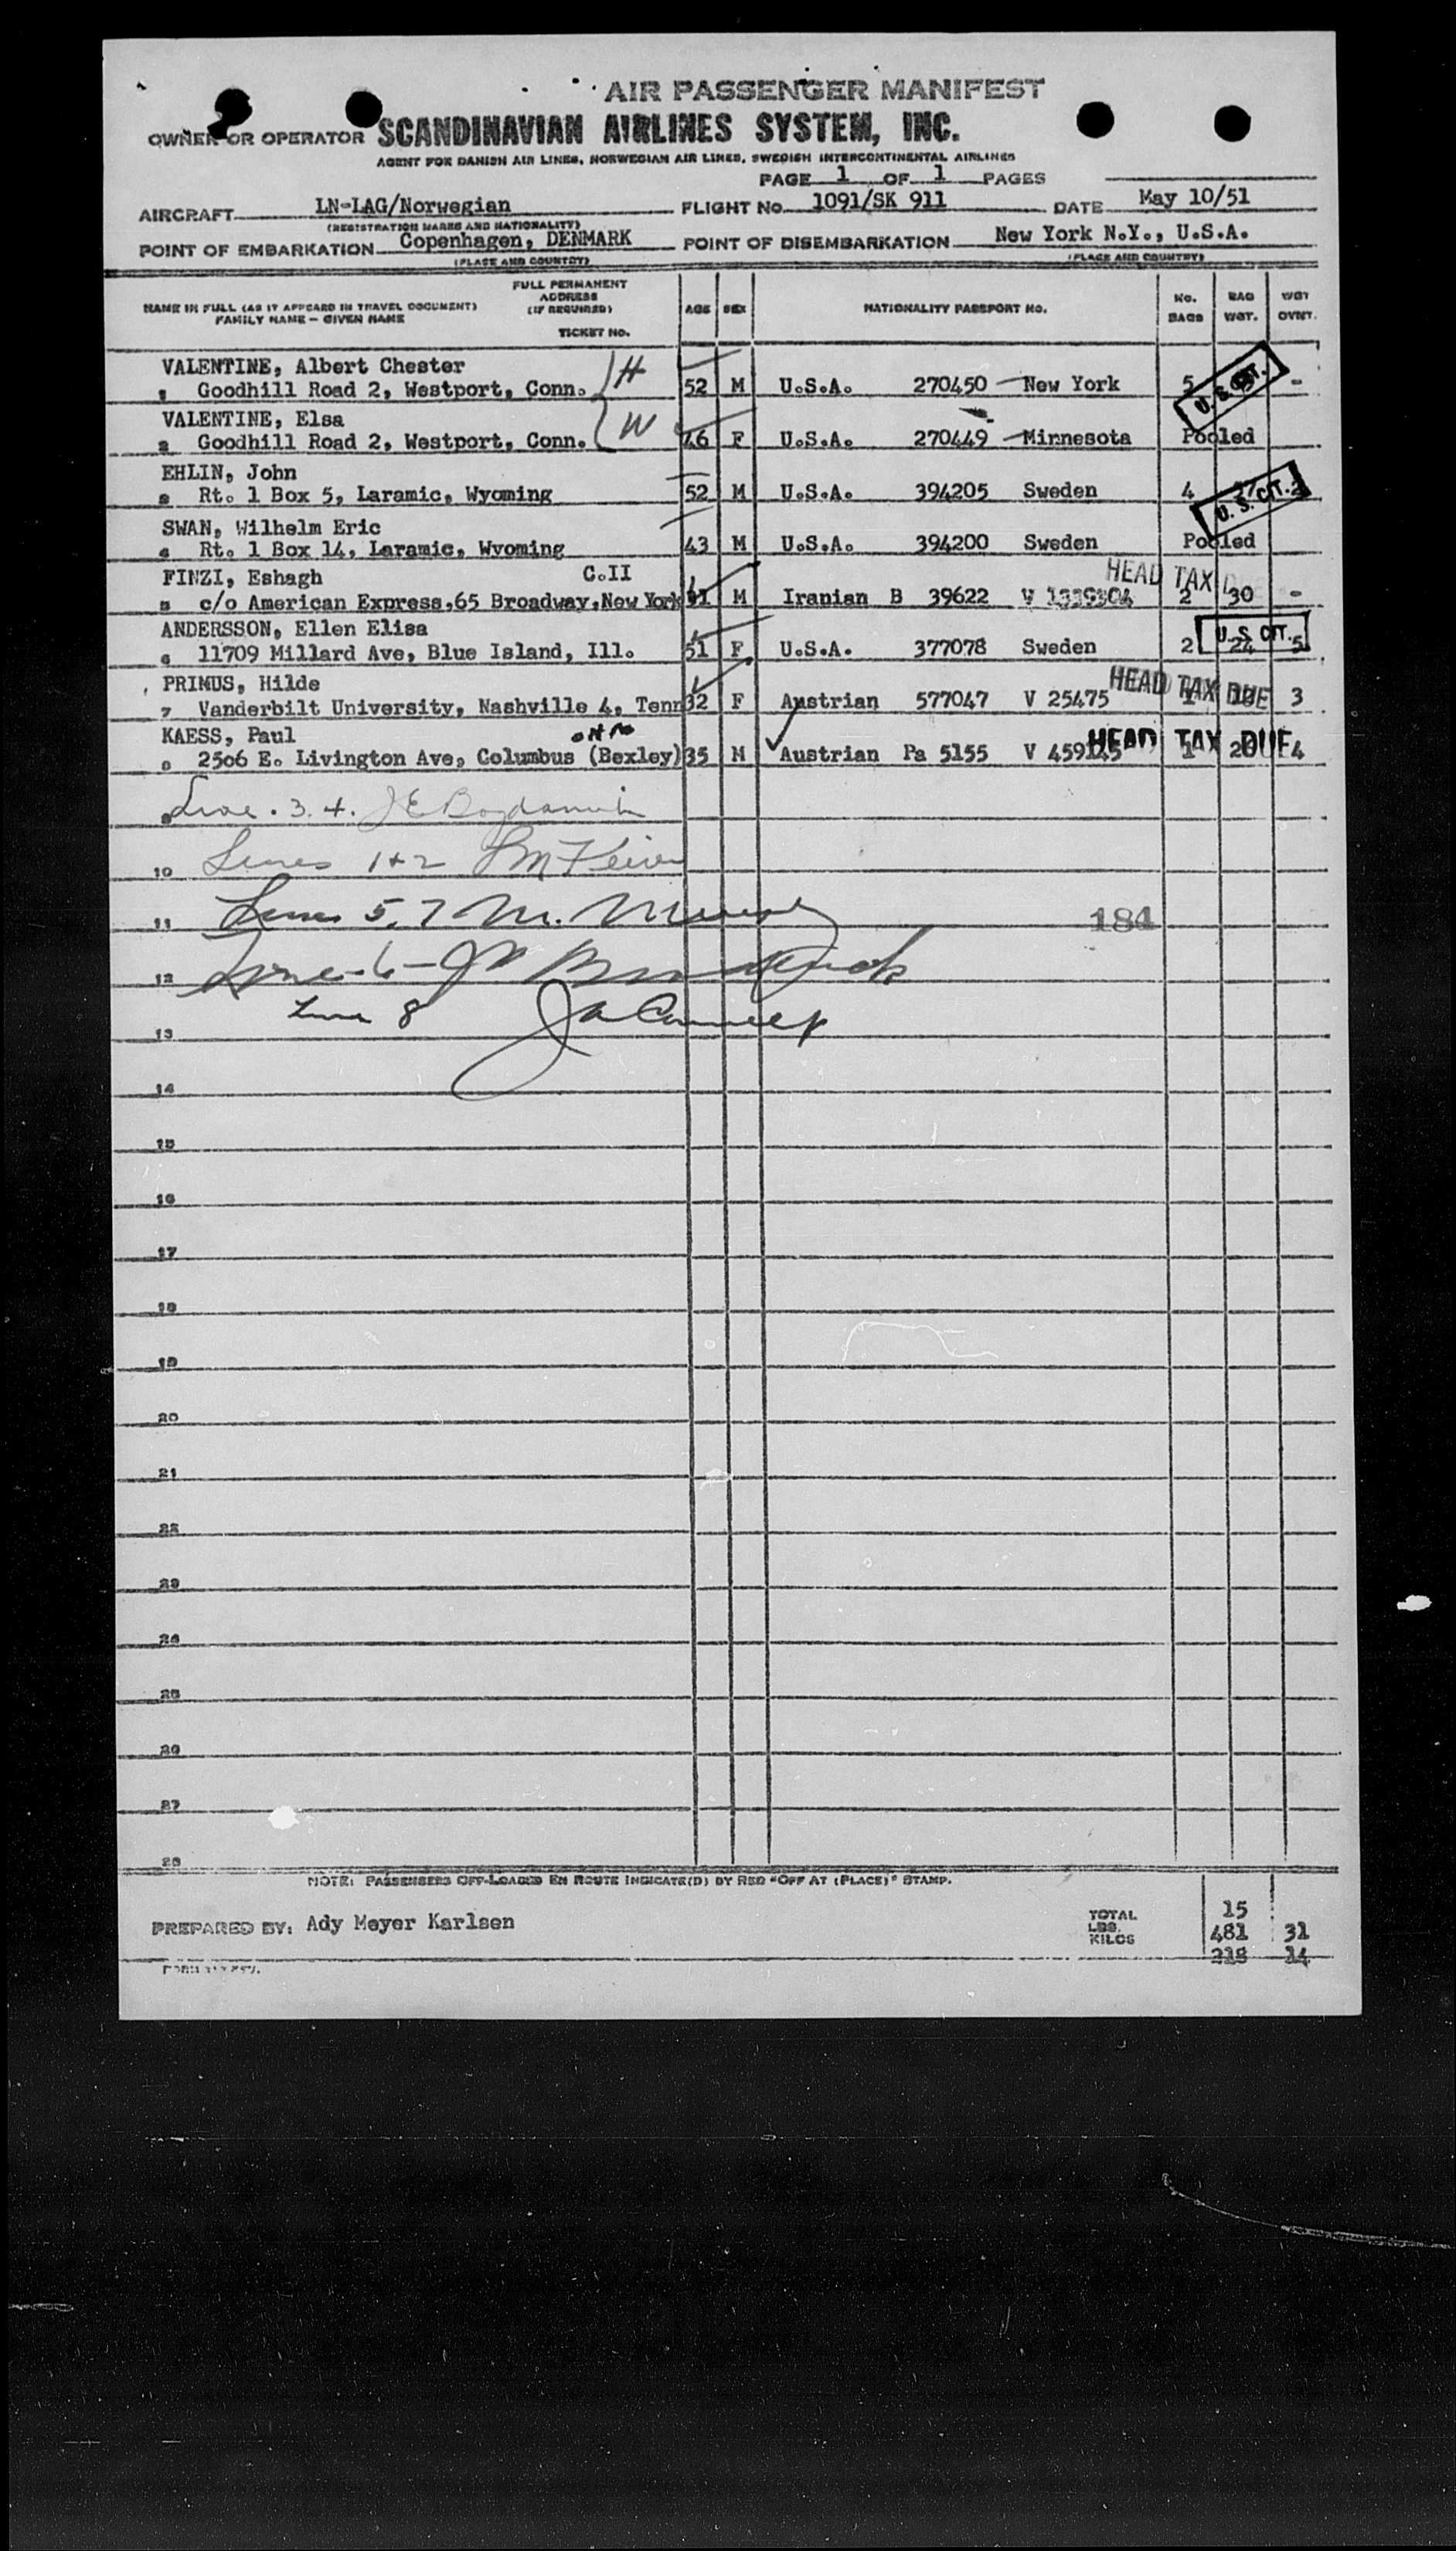 AIR PASSENGER MANIFEST
OWNER OR OPERATOR SCANDINAVIAN AIRLINES SYSTEM, INC.
AGENT FOR DANISH AIR LINES, NORWEGIAN AIR LINES, SWEDISH INTERCONTINENTAL AIRLINES
PAGE 1 OF 1 PAGES
AIRCRAFT LN-LAG/Norwegian FLIGHT No. 1091/SK 911 DATE May 10/51
(REGISTRATION MARKS AND NATIONALITY)
POINT OF EMBARKATION Copenhagen, DENMARK POINT OF DISEMBARKATION New York N.Y., U.S.A.
(PLACE AND COUNTRY) (PLACE AND COUNTRY)
NAME IN FULL (AS IT APPEARS IN TRAVEL DOCUMENT) FAMILY NAME – GIVEN NAME FULL PERMANENT ADDRESS (IF REQUIRED) TICKET NO. AGE SEX NATIONALITY PASSPORT NO. No. BAGS BAG WGT. WGT OVWT.
VALENTINE, Albert Chester H
1 Goodhill Road 2, Westport, Conn. 52 M U.S.A. 270450 New York 5 U. S. CIT. -
VALENTINE, Elsa W
2 Goodhill Road 2, Westport, Conn. 46 F U.S.A. 270449 Minnesota Pooled
EHLIN, John
3 Rt. 1 Box 5, Laramic, Wyoming 52 M U.S.A. 394205 Sweden 4 U. S. CIT.
SWAN, Wilhelm Eric
4 Rt. 1 Box 14, Laramic, Wyoming 43 M U.S.A. 394200 Sweden Pooled
FINZI, Eshagh C.II HEAD TAX
5 c/o American Express.65 Broadway.New York M Iranian B 39622 2 30 -
ANDERSSON, Ellen Elisa
6 11709 Millard Ave, Blue Island, Ill. 51 F U.S.A. 377078 Sweden 2 24 5 U. S. CIT.
PRIMUS, Hilde HEAD TAX DUE
7 Vanderbilt University, Nashville 4, Tenn 32 F Austrian 577047 V 25475 1 3
KAESS, Paul OHIO HEAD TAX DUE
8 2506 E. Livington Ave, Columbus (Bexley) 35 M Austrian Pa 5155 V 459145 1 20 4
Line . 3.4.
10 Lines 1+2
11 Lines 5,7 M. 184
12 Line-6-
Line 8
13
14
15
16
17
18
19
20
21
22
23
24
25
26
27
28
NOTE: PASSENGERS OFF-LOADED EN ROUTE INDICATE(D) BY RED "OFF AT (PLACE)" STAMP.
PREPARED BY: Ady Meyer Karlsen
TOTAL 15
LBS. 481 31
KILOS 218 14